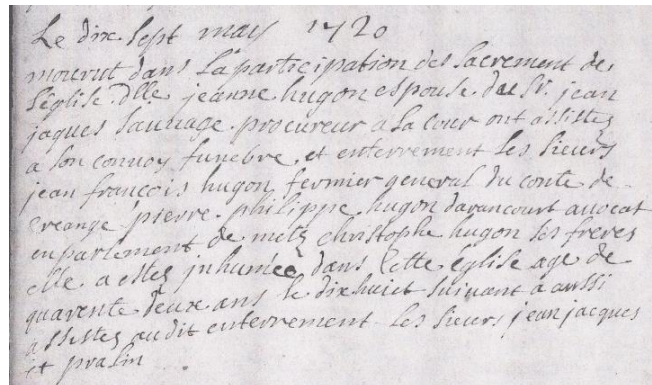 Le dix-sept mars 1720
mourut dans la participation des sacrement de
l'église dlle jeanne hugon espouse du Sr. jean
jaques Sauuage procureur a la cour ont assistes
a son convoy funebre et enterrement les sieurs
jean françois hugon fermier general du conte de
Creange pierre philippe hugon darancourt auocat
en parlement de metz christophe hugon ses freres
elle a estez inhumée dans cette église age de
quarente deux ans le dixhuict suiuant a aussi
assistez audit enterrement les sieurs jean jacques
et pralin